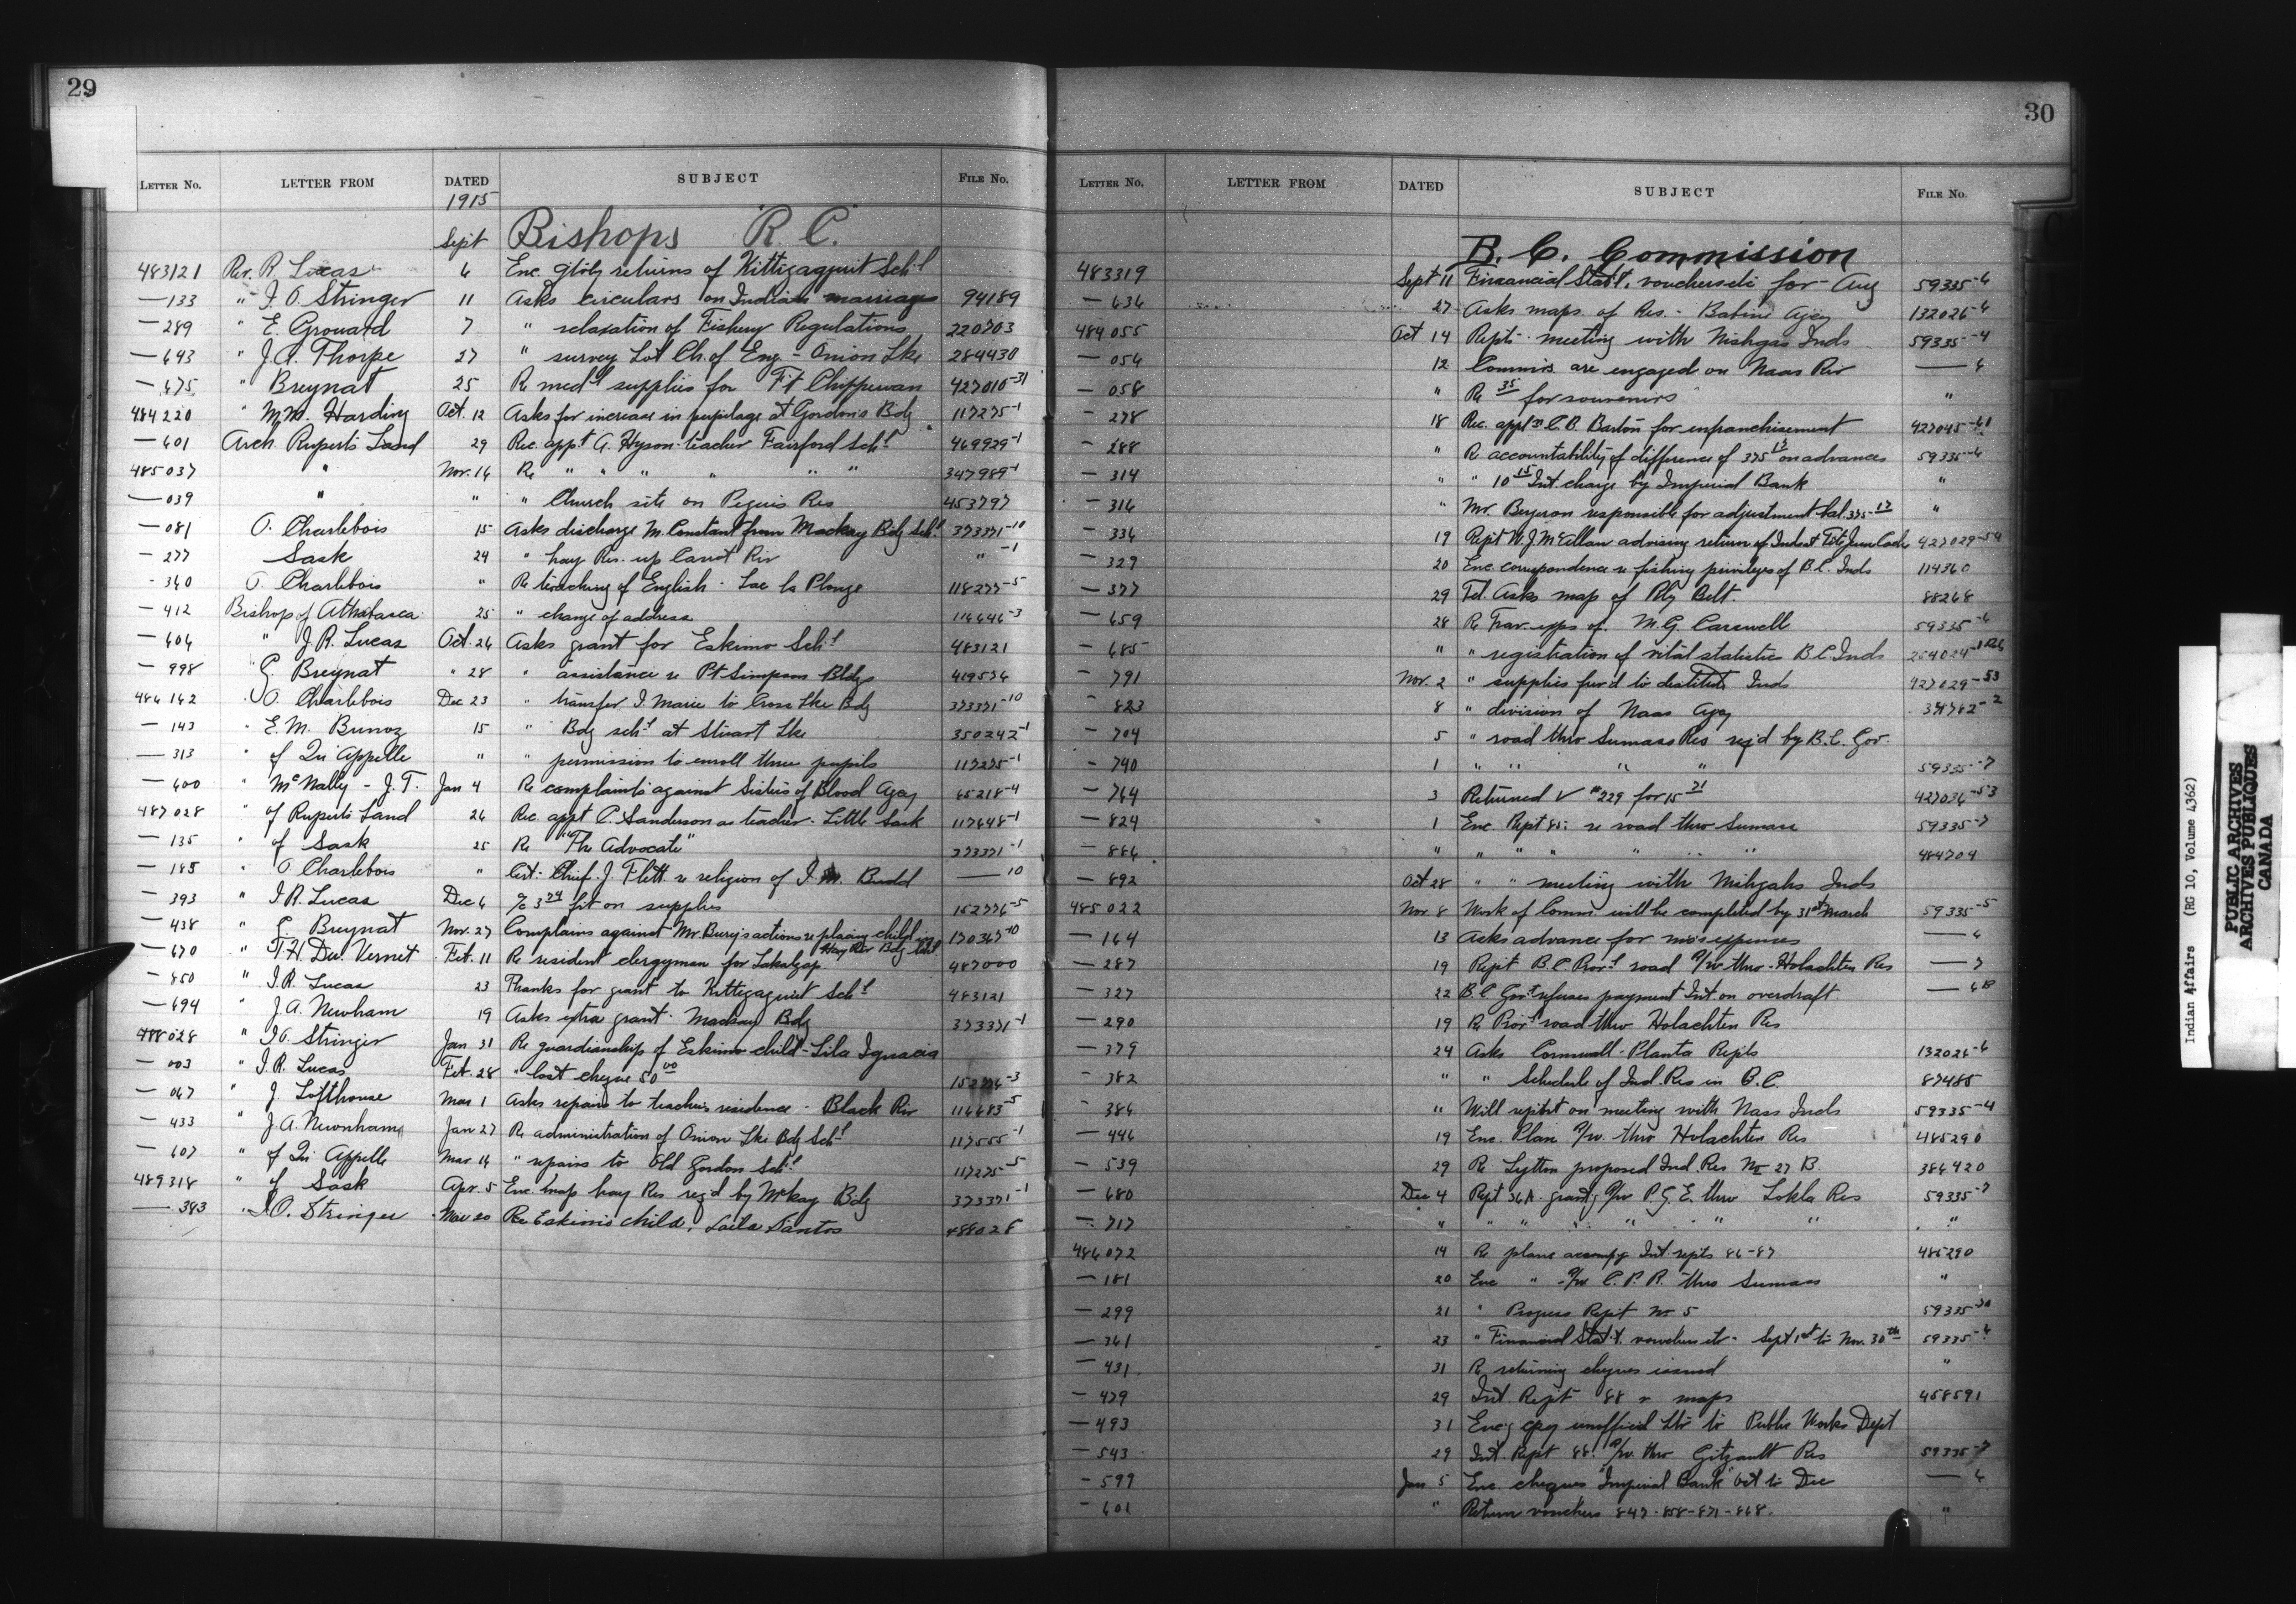 29
LETTER No. LETTER FROM DATED SUBJECT FILE No.
1915
Sept Bishops R. C.
483121 Rev. R. Lucas 6 Enc. qtrly returns of Kittigagzuit Sch'l
—133 " I. O. Stringer 11 Asks circulars on Indian marriages 94189
—289 " E. Grouard 7 " relaxation of Fishery Regulations 220703
—643 " J. A. Thorpe 27 " survey Lot Ch. of Eng - Onion Lke 284430
—675 " Breynat 25 Re med'l supplies for Ft Chippewan 427010-31
484220 " M.M. Harding Oct. 12 Asks for increase in pupilage at Gordon's Bdg 117275-1
—601 Arch. Rupert's Land 29 Rec. appt A. Hyson teacher Fairford Sch'l 469929-1
485037 " Nov. 16 Re " " " " " " 347989-1
—039 " " " Church site on Peguis Res 453797
—081 O. Charlebois 15 Asks discharge M. Constant from Mackay Bdg Sch'l 373371-10
—277 Sask 24 " hay Res. up Carrot Riv " -1
-340 O. Charlebois " Re teaching of English - Lac la Plonge 118277-5
—412 Bishop of Athabasca 25 " change of address 114646-3
—604 " J. R. Lucas Oct. 26 Asks grant for Eskimo Sch'l 483121
—998 G. Breynat " 28 " assistance re Ft Simpson Bldgs 419574
486142 O. Charlebois Dec 23 " transfer I. Marie to Cross Lke Bdg 373371-10
—143 " E. M. Bunoz 15 " Bdg sch'l at Stuart Lke 350242-1
—313 " of Qu'Appelle " " permission to enroll three pupils 117275-1
—600 " McNally - J. T. Jan 4 Re complaints against Sisters of Blood Agcy 65218-4
487028 " of Ruperts Land 26 Rec. appt C. Sanderson as teacher - Little Sask 117648-1
—135 " of Sask 25 Re "The Advocate" 373371-1
—185 " O Charlebois " Cert. Chief J. Flett re religion of I. M. Budd —10
—393 " I. R. Lucas Dec 6 % 3 74 frt on supplies 152776-5
—438 " E. Breynat Nov. 27 Complains against Mr. Bury's actions re placing child in 170367-10
Hay Riv Bdg Sch'l
—670 " F. H. Du Vernet Feb. 11 Re resident clergyman for Lakalzap 487000
—850 " I. R. Lucas 23 Thanks for grant to Kittigagzuit Sch'l 483121
—694 " J. A. Newnham 19 Asks extra grant - Mackay Bdg 373371-1
488028 " I. O. Stringer Jan 31 Re guardianship of Eskimo child - Lila Ignacia
—003 " I. R. Lucas Feb. 28 " lost cheque 50 00 152776-3
—067 " J. Lofthouse Mar 1 Asks repairs to teacher's residence - Black Riv 114683-5
—433 " J. A. Newnham Jan 27 Re administration of Onion Lke Bdg Sch'l 117555-1
—607 " of Qu' Appelle Mar 14 " repairs to Old Gordon Sch'l 117275-5
489318 " of Sask Apr. 5 Enc. map hay Res req'd by McKay Bdg 373371-1
—383 " I. O. Stringer Mar 20 Re Eskimo child, Laila Santos 488028
30
LETTER No. LETTER FROM DATED SUBJECT FILE No.
B. C. Commission
483319 Sept 11 Financial Stat't, vouchers etc for - Aug 59335-6
—636 27 Asks maps of Res. - Babine Agcy 132026-6
484055 Oct 14 Rept. meeting with Nishgas Inds 59335-4
—054 12 Commrs. are engaged on Naas Riv —4
—058 " Re 35 for souvenirs "
—278 18 Rec. appl'n C. B. Barton for enfranchisement 427045-61
—288 " Re accountability of difference of 375 17 on advances 59335-6
—314 " " 10 15 Int. charge by Imperial Bank "
—316 " Mr. Bergeron responsible for adjustment bal. 375 17 "
—336 19 Rept W. J. McEllan advising return of Inds at Tete Jeune Cache 427029-54
—329 20 Enc. correspondence re fishing privileges of B.C. Inds 114360
—377 29 Tel. Asks map of Rly Belt. 88268
—659 28 Re Trav. exps of M. G. Carswell 59335-6
—685 " " registration of vital statistics B.C. Inds 254024-1
—791 Nov. 2 " supplies furn'd to destitute Inds 427029-53
—823 8 " division of Naas Agcy 371782-2
—704 5 " road thro Sumass Res req'd by B.C. Gov.
—740 1 " " " " 59335-7
—764 3 Returned V # 229 for 15 31 427036-53
—824 1 Enc. Rept 85: re road thro Sumass 59335-7
—886 " " " " " " " 484704
—892 Oct 28 " " meeting with Nihgahs Inds
485022 Nov. 8 Work of Comm. will be completed by 31st March 59335-5
—164 13 Asks advance for mo's expenses —6
—287 19 Rept B. C. Prov'l road R/w thro - Holachten Res —7
—327 22 B. C. Gov't refuses payment Int. on overdraft. —6
—290 19 Re Prov'l road thro Holachten Res
—379 24 Asks Cornwall - Planta Repts 132026-6
—382 " " Schedule of Ind. Res in B.C. 87485
-386 " Will report on meeting with Nass Inds 59335-4
—446 19 Enc. Plan R/w. thro Holachten Res 485290
—539 29 Re Lytton proposed Ind. Res No 27 B. 386420
—680 Dec 4 Rept 36A. grant'g R/w P. G. E. thro Lokla Res 59335-7
—717 " " " " " " " " "
486072 14 Re plans accomp'g Int. repts 86-87 485290
—181 20 Enc " R/w C. P. R. thro Sumass "
—299 21 " Progress Rept No 5 59335
—361 23 " Financial Stat't. vouchers etc - Sept 1st to Nov. 30th 59335-6
—431 31 Re returning cheques issued "
—479 29 Int. Rept 88 re maps 458591
—493 31 Enc'g copy unofficial Ltr to Public Works Dept
—543 29 Int. Rept 88. R/w. thro Gitzault Res 59335-7
—599 Jan 5 Enc. cheques "Imperial Bank" Oct to Dec —6
—601 " Return vouchers 847-858-871-868. "
Indian Affairs (RG 10, Volume 4362)
PUBLIC ARCHIVES
ARCHIVES PUBLIQUES
CANADA